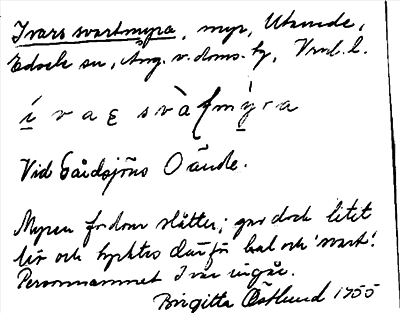 Ivars svartmyra, myr, Utmede,
Edsele sn, Ång. v. doms. tg, Vrml. l.
í v a ɛ s v à ʃ m ý r a
Vid Gårdsjöns O ände.
Myren fordom slåtter; gav dock litet
hö och tycktes därför kal och 'svart'.
Personnamnet Ivar ingår.
Birgitta Östlund 1955